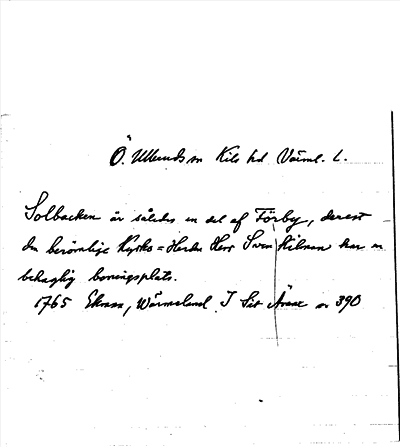 Ö. Ullerud sn Kils hd Värml. L.
Solbacken är således en del af Förby, derest
den berömlige Kyrko=Herden Herr Sven har en
behaglig boningsplats.
1765 Ekman, Wärmeland I Sit Ämne s. 390